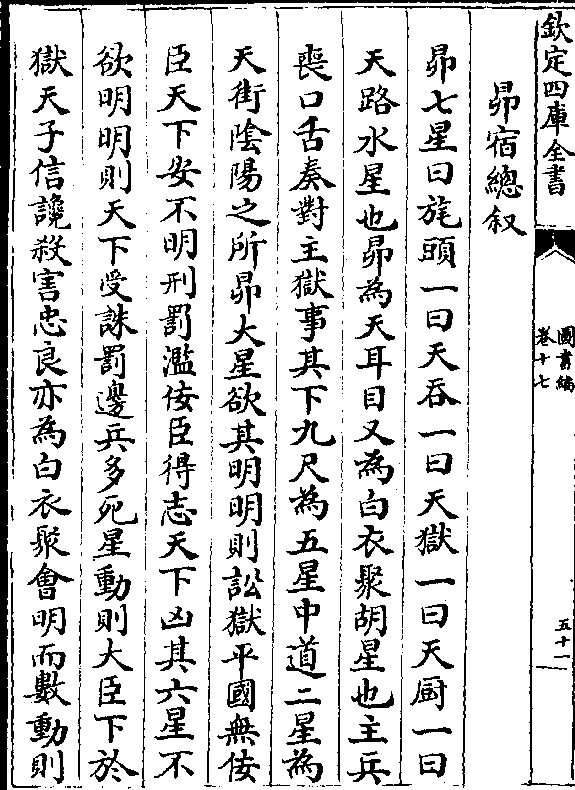 欽定四庫全書
圖書編
卷十七
五十一
昴宿總叙
昴七星曰旄頭一曰天吞一曰天獄一曰天厨一曰
天路水星也昴為天耳目又為白衣聚胡星也主兵
喪口舌奏對主獄事其下九尺為五星中道二星為
天街陰陽之所昴大星欲其明明則訟獄平國無佞
臣天下安不明刑罰濫佞臣得志天下凶其六星不
欲明明則天下受誅罰邊兵多死星動則大臣下於
獄天子信讒殺害忠良亦為白衣聚會明而數動則